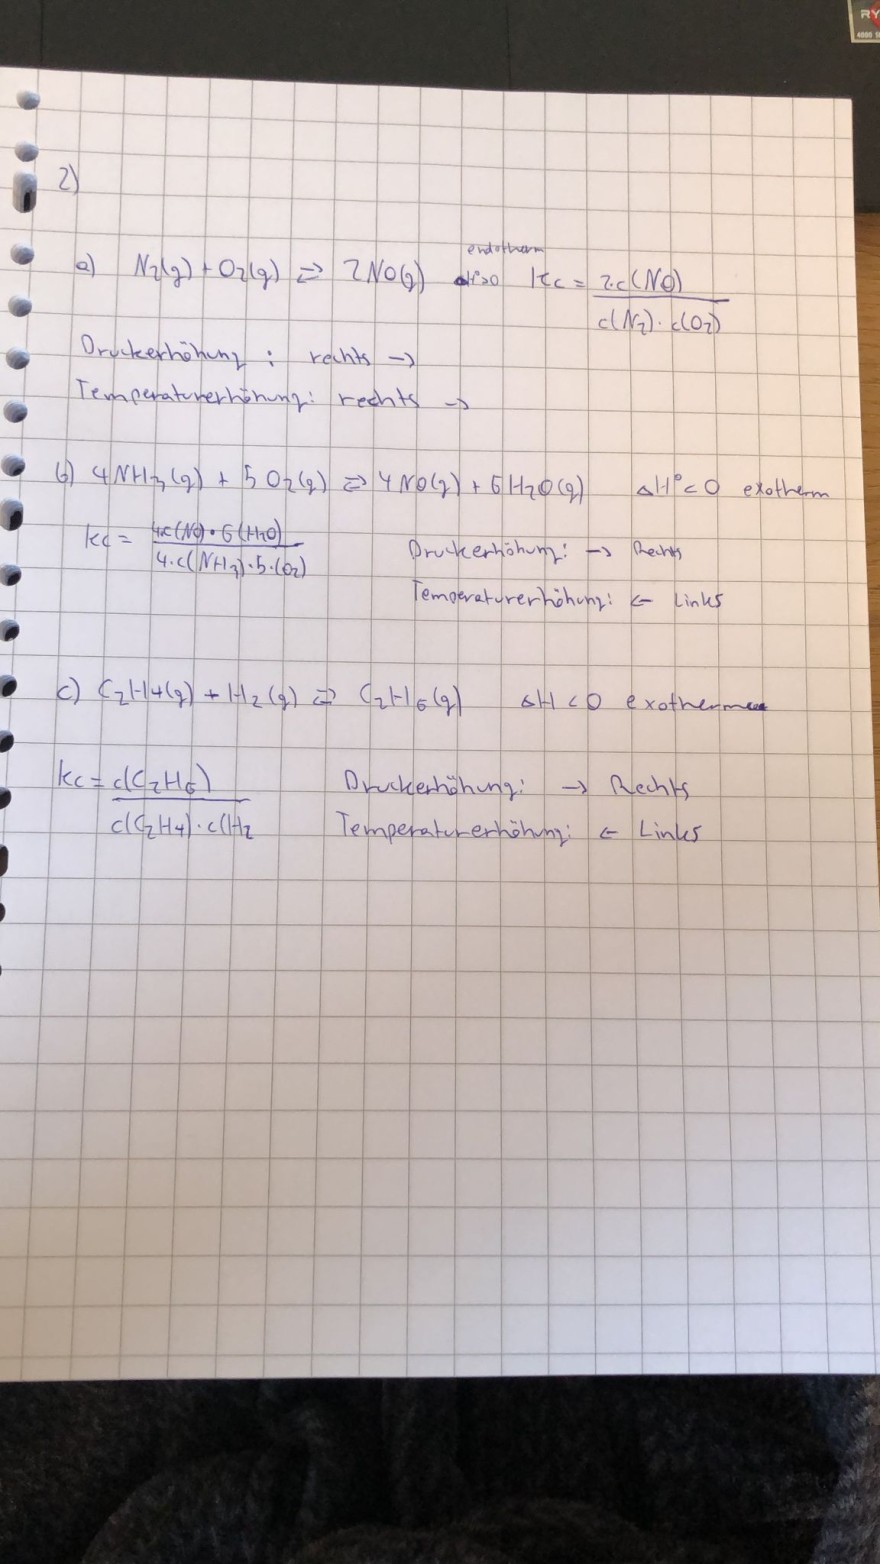 RY
4000 S
2)
endotherm
a) N2(g) + O2(g) ⇌ 2NO(g) ΔH°>0 Kc = 2·c(NO) / c(N2)·c(O2)
Druckerhöhung: rechts →
Temperaturerhöhung: rechts →
b) 4NH3(g) + 5O2(g) ⇌ 4NO(g) + 6H2O(g) ΔH°<0 exotherm
Kc = 4·c(NO)·6(H2O) / 4·c(NH3)·5·(O2) Druckerhöhung: → Rechts
Temperaturerhöhung: ← Links
c) C2H4(g) + H2(g) ⇌ C2H6(g) ΔH<0 exotherm
Kc = c(C2H6) / c(C2H4)·c(H2 Druckerhöhung: → Rechts
Temperaturerhöhung: ← Links